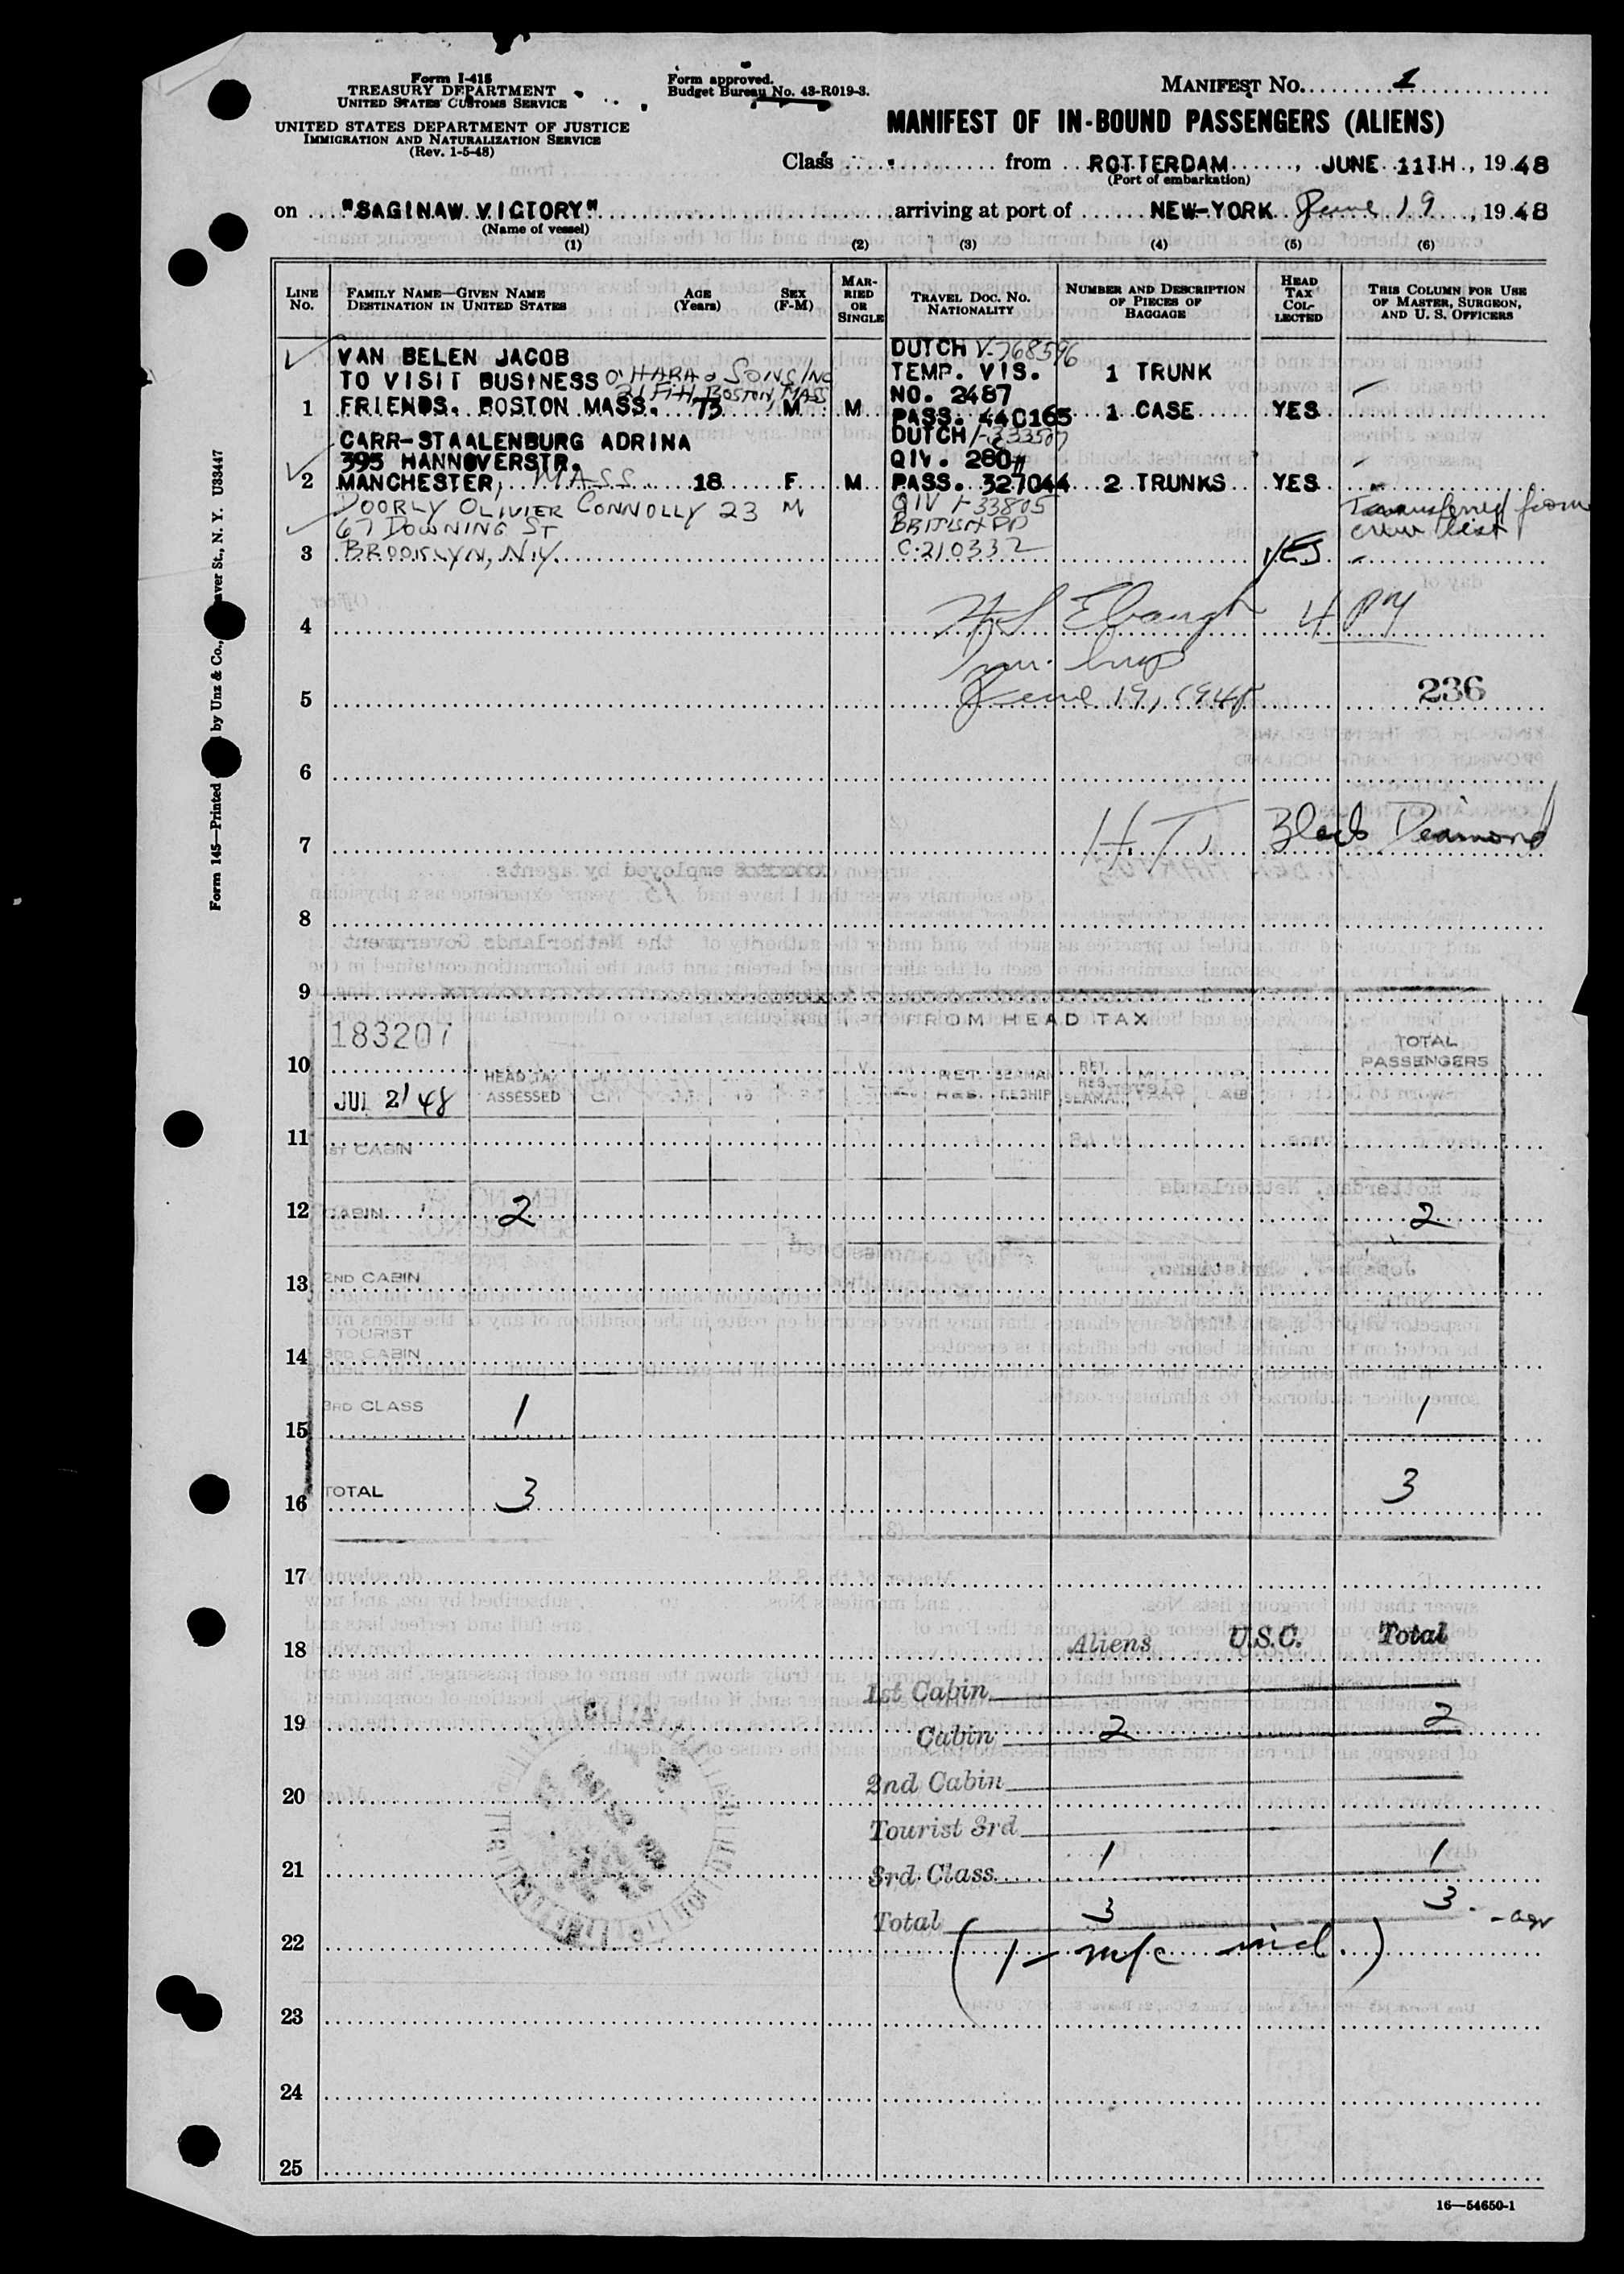 Form I-418
TREASURY DEPARTMENT
UNITED STATES CUSTOMS SERVICE
UNITED STATES DEPARTMENT OF JUSTICE
IMMIGRATION AND NATURALIZATION SERVICE
(Rev. 1-5-48)
Form approved.
Budget Bureau No. 43-R019-3.
MANIFEST NO. 1
MANIFEST OF IN-BOUND PASSENGERS (ALIENS)
Class from ROTTERDAM, JUNE 11TH, 1948
(Port of embarkation)
on "SAGINAW VICTORY" arriving at port of NEW-YORK June 19, 1948
(Name of vessel)
(1) (2) (3) (4) (5) (6)
LINE NO.
FAMILY NAME—GIVEN NAME
DESTINATION IN UNITED STATES
AGE (Years)
SEX (F-M)
MARRIED OR SINGLE
TRAVEL DOC. NO.
NATIONALITY
NUMBER AND DESCRIPTION OF PIECES OF BAGGAGE
HEAD TAX COLLECTED
THIS COLUMN FOR USE OF MASTER, SURGEON, AND U. S. OFFICERS
VAN BELEN JACOB DUTCH V-768596
TO VISIT BUSINESS O'HARA & SONS INC TEMP. VIS. 1 TRUNK
21 FTH BOSTON, MASS NO. 2487
1 FRIENDS. BOSTON MASS. 73 M M PASS. 44C165 1 CASE YES
CARR-STAALENBURG ADRINA DUTCH I-333507
395 HANNOVERSTR. QIV. 280#
2 MANCHESTER, MASS 18 F M PASS. 327044 2 TRUNKS YES
DOORLY OLIVIER CONNOLLY 23 M QIV I-33805 Transferred from
67 DOWNING ST BRITISH PP crew list
3 BROOKLYN, N.Y. C.210332 YES
4 H S Ebaugh 4 PM
Imm. Insp
5 June 19, 1948 236
6
7 H.T. Black Diamond
8
9
FROM HEAD TAX
183207
TOTAL PASSENGERS
10
HEAD TAX ASSESSED
RET. RES.
JUL 2 '48
11
1ST CABIN
12 CABIN 2 2
13 2ND CABIN
TOURIST
14 3RD CABIN
3RD CLASS 1 1
15
16 TOTAL 3 3
17
18 Aliens U.S.C. Total
1st Cabin
19
Cabin 2 2
2nd Cabin
20
Tourist 3rd
21 3rd Class 1 1
Total 3 3
22 (1 - m/c incl.)
23
24
25
16—54650-1
Form 145—Printed by Unz & Co., aver St., N. Y. U33447